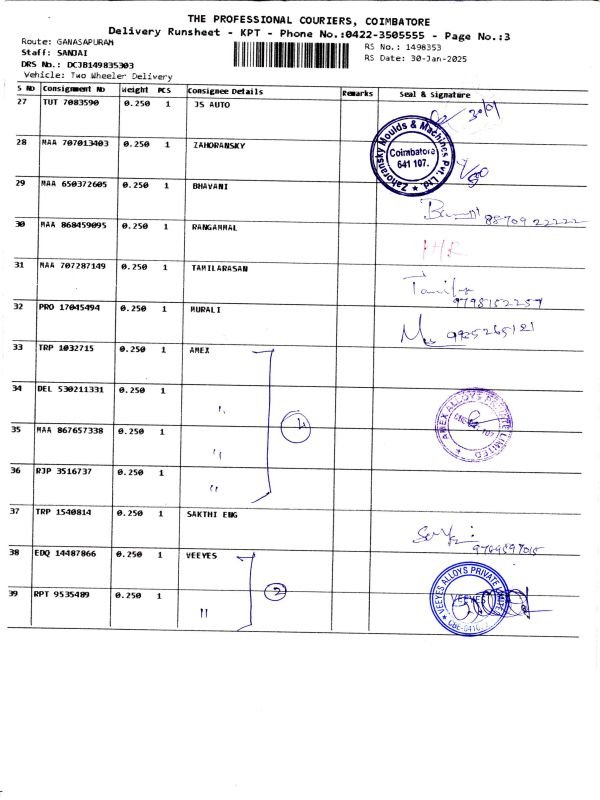 THE PROFESSIONAL COURIERS, COIMBATORE
Delivery Runsheet - KPT - Phone No.:0422-3505555 - Page No.:3
Route: GANASAPURAM
Staff: SANJAI
DRS No.: DCJB149835303
Vehicle: Two Wheeler Delivery
RS No.: 1498353
RS Date: 30-Jan-2025
S NO Consignment No Weight PCS Consignee Details Remarks Seal & Signature
27 TUT 7083590 0.250 1 JS AUTO 30/01
28 MAA 707013403 0.250 1 ZAHORANSKY
Zahoransky Moulds & Machines Pvt. Ltd.
Coimbatore
641 107.
29 MAA 650372605 0.250 1 BHAVANI
88709 22222
30 MAA 868459095 0.250 1 RANGAMMAL
31 MAA 707287149 0.250 1 TAMILARASAN
9798152257
32 PRO 17045494 0.250 1 MURALI
9925265121
33 TRP 1032715 0.250 1 AMEX
34 DEL 530211331 0.250 1 "
35 MAA 867657338 0.250 1 "
36 RJP 3516737 0.250 1 "
4
AMEX ALLOYS PRIVATE LIMITED
37 TRP 1540814 0.250 1 SAKTHI ENG
9764597015
38 EDQ 14487866 0.250 1 VEEYES
39 RPT 9535489 0.250 1 "
2
VEEYES ALLOYS PRIVATE LIMITED
VEEYES